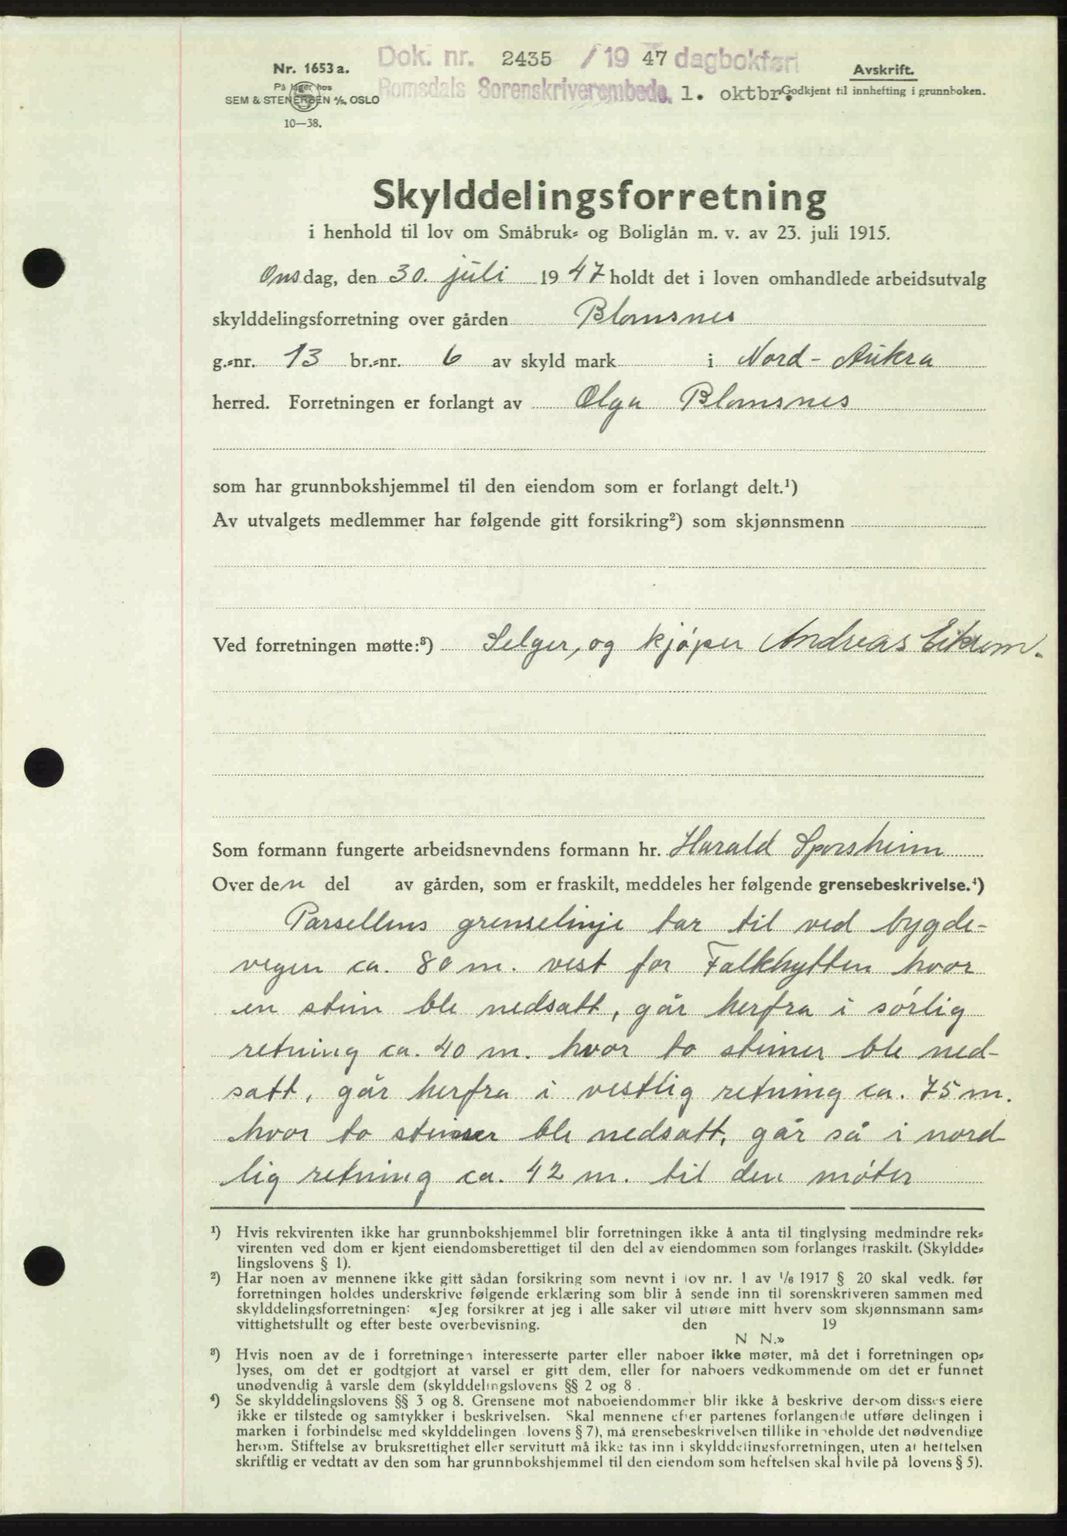 Nr. 1653 a.
På lager hos
SEM & STENERSEN A/S, OSLO
10—38.
Dok. nr. 2435 / 19 47 dagbokført
Romsdals Sorenskriverembede, 1. oktbr.
Avskrift.
Godkjent til innhefting i grunnboken.
Skylddelingsforretning
i henhold til lov om Småbruk- og Boliglån m. v. av 23. juli 1915.
Onsdag, den 30. juli 19 47 holdt det i loven omhandlede arbeidsutvalg
skylddelingsforretning over gården Blomsnes
g.-nr. 13 br.-nr. 6 av skyld mark i Nord-Aukra
herred. Forretningen er forlangt av Olga Blomsnes
som har grunnbokshjemmel til den eiendom som er forlangt delt.¹)
Av utvalgets medlemmer har følgende gitt forsikring²) som skjønnsmenn
Ved forretningen møtte:³) Selger, og kjøper Andreas Eikrem.
Som formann fungerte arbeidsnevndens formann hr. Harald Sporsheim
Over den del av gården, som er fraskilt, meddeles her følgende grensebeskrivelse.⁴)
Parsellens grenselinje tar til ved bygde-
vegen ca. 80 m. vest for Falkhytten hvor
en stein ble nedsatt, går herfra i sørlig
retning ca. 40 m. hvor to steiner ble ned-
satt, går herfra i vestlig retning ca. 75 m.
hvor to steiner ble nedsatt, går så i nord
lig retning ca. 42 m. til den møter
¹) Hvis rekvirenten ikke har grunnbokshjemmel blir forretningen ikke å anta til tinglysing medmindre rek-
virenten ved dom er kjent eiendomsberettiget til den del av eiendommen som forlanges fraskilt. (Skyldde-
lingslovens § 1).
²) Har noen av mennene ikke gitt sådan forsikring som nevnt i lov nr. 1 av 1/6 1917 § 20 skal vedk. før
forretningen holdes underskrive følgende erklæring som blir å sende inn til sorenskriveren sammen med
skylddelingsforretningen: «Jeg forsikrer at jeg i alle saker vil utføre mitt hverv som skjønnsmann sam-
vittighetsfullt og efter beste overbevisning. den 19
N N.»
³) Hvis noen av de i forretningen interesserte parter eller naboer ikke møter, må det i forretningen op-
lyses, om det er godtgjort at varsel er gitt dem, eller for naboers vedkommende om det er funnet
unødvendig å varsle dem (skylddelingslovens §§ 2 og 8.
⁴) Se skylddelingslovens §§ 3 og 8. Grensene mot naboeiendommer blir ikke å beskrive dersom disses eiere
ikke er tilstede og samtykker i beskrivelsen. Skal mennene efter partenes forlangende utføre delingen i
marken i forbindelse med skylddelingen lovens § 7), må grensebeskrivelsen tillike inneholde det nødvendige
herom. Stiftelse av bruksrettighet eller servitutt må ikke tas inn i skylddelingsforretningen, uten at heftelsen
skriftlig er vedtatt av den som har grunnbokshjemmel til den eiendom som heftelsen skal hvile på lovens § 5).